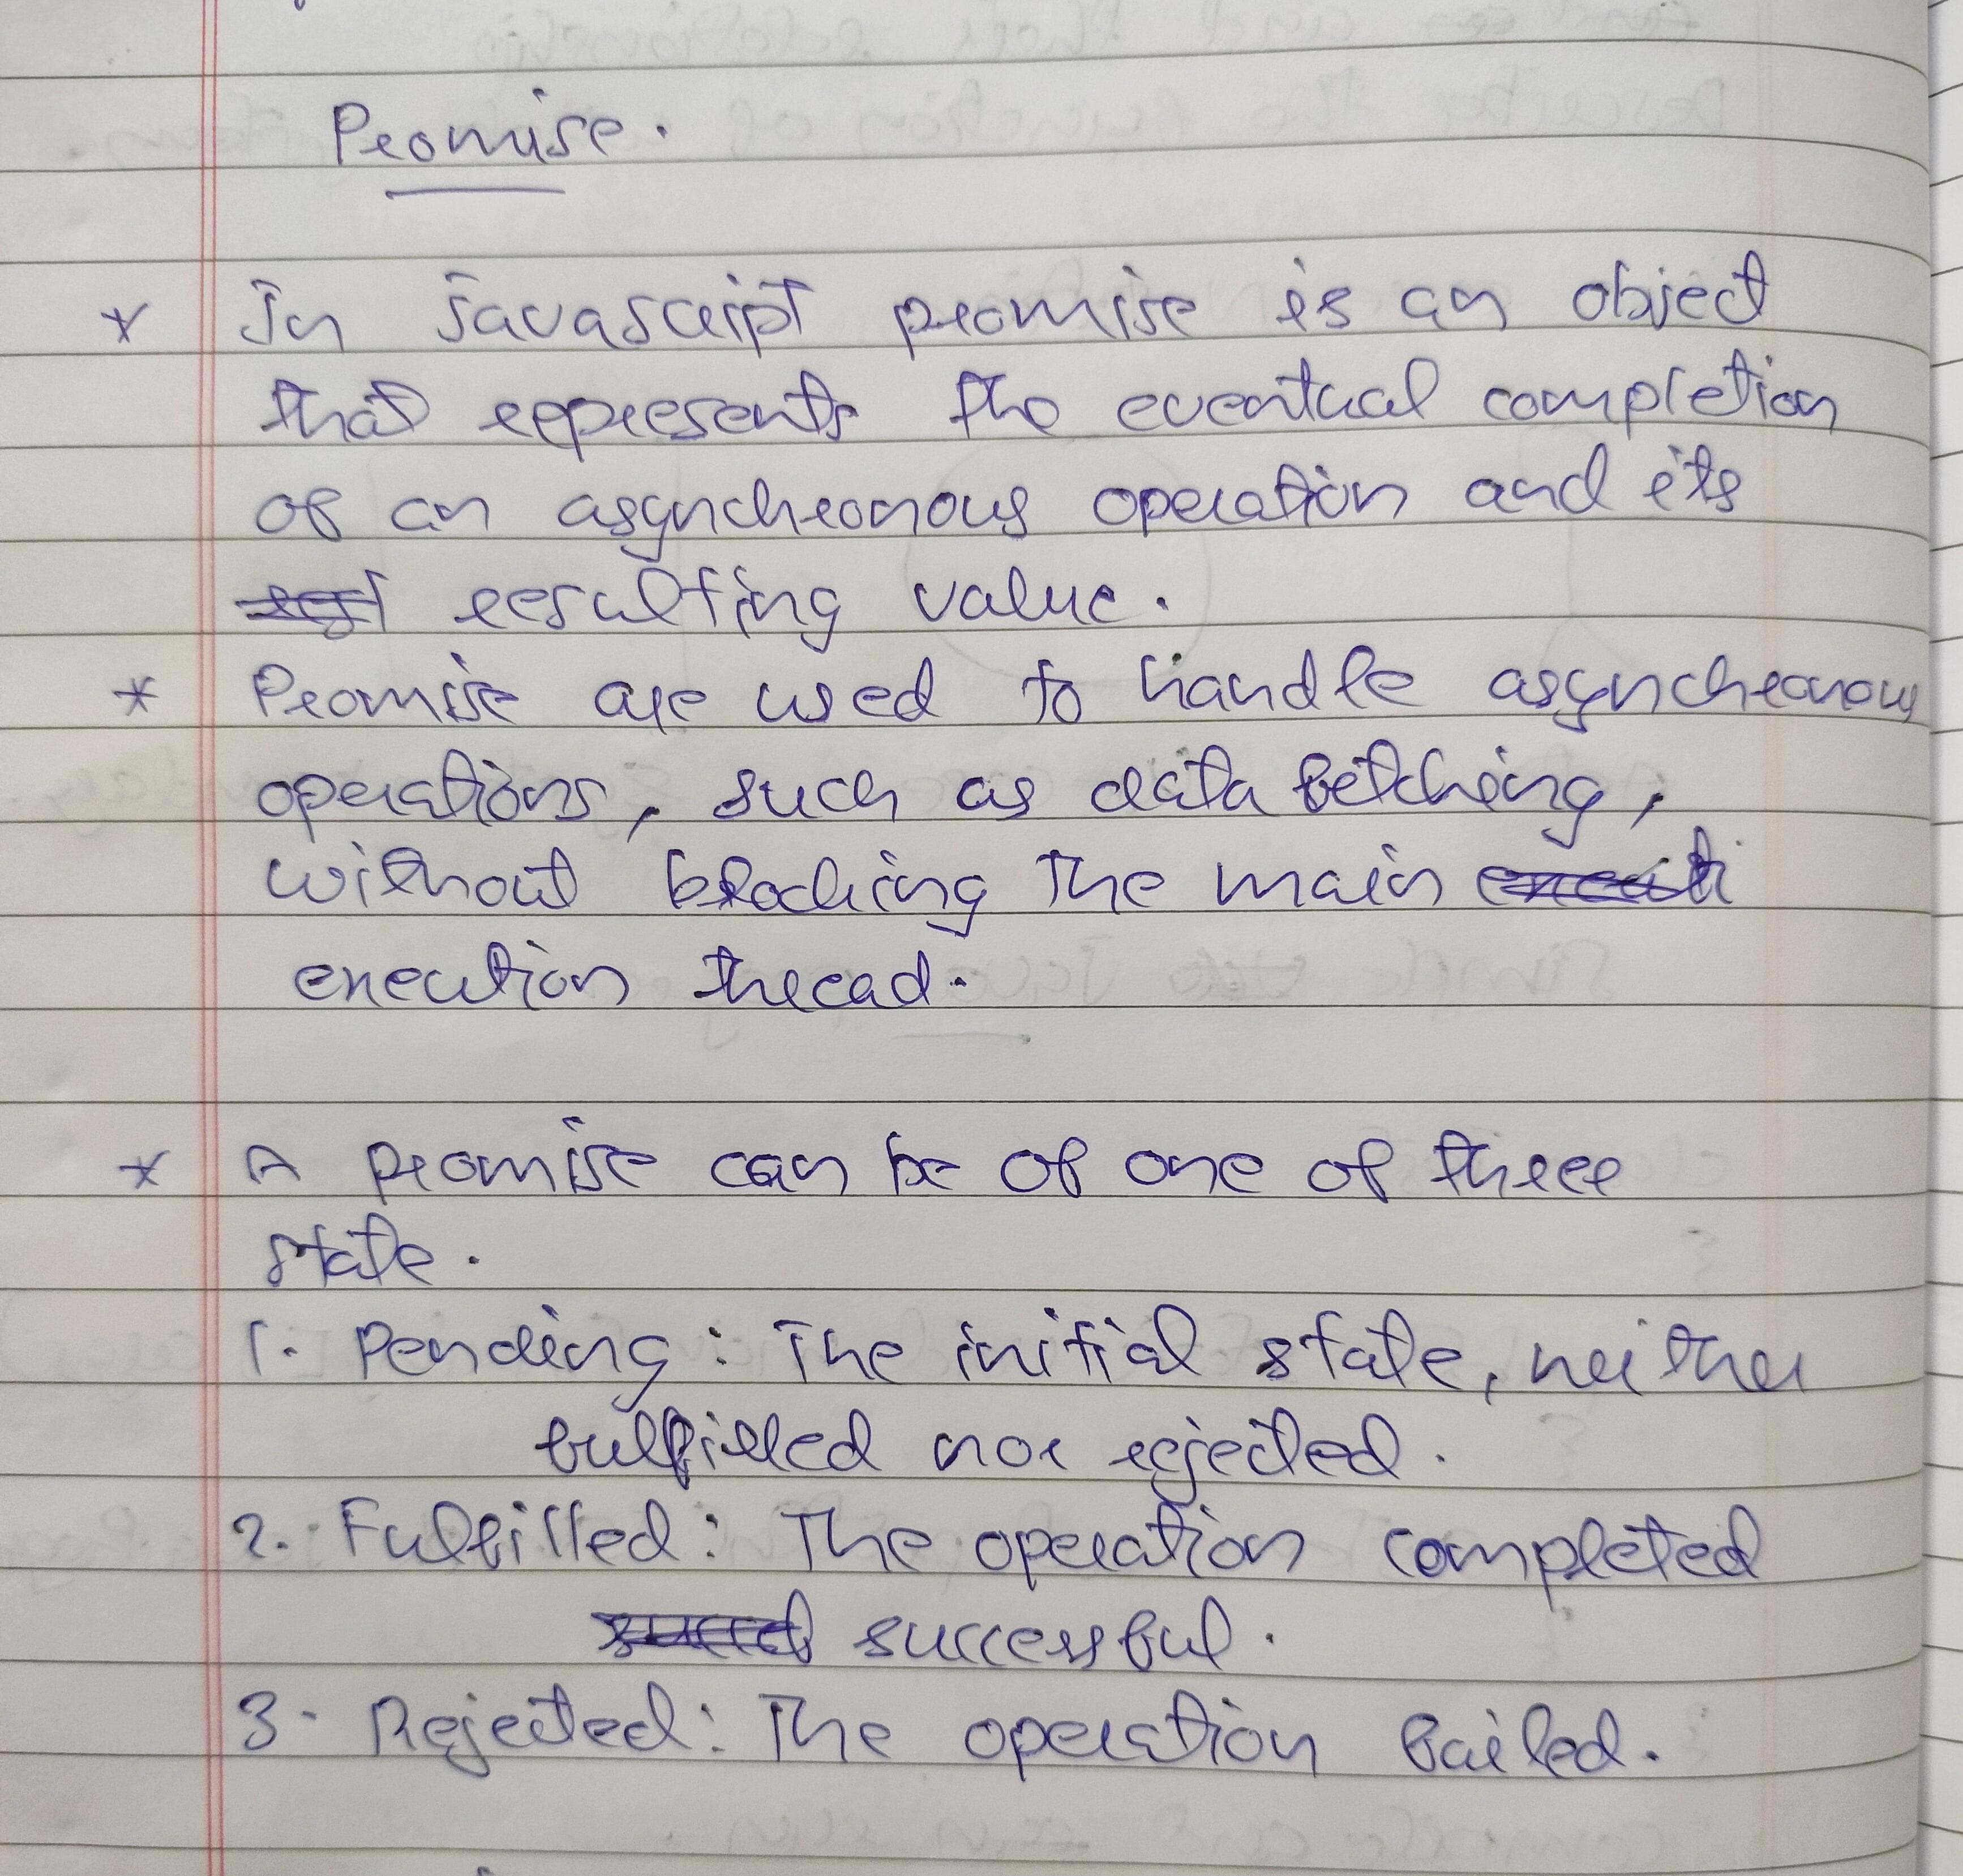 Promise.
* In Javascript promise is an object
that represents the eventual completion
of an asynchronous operation and its
resulting value.
* Promise are used to handle asynchronous
operations, such as data fetching,
without blocking the main
execution thread.
* A promise can be of one of three
state.
1. Pending: The initial state, neither
fulfilled nor rejected.
2. Fulfilled: The operation completed
successful.
3. Rejected: The operation failed.